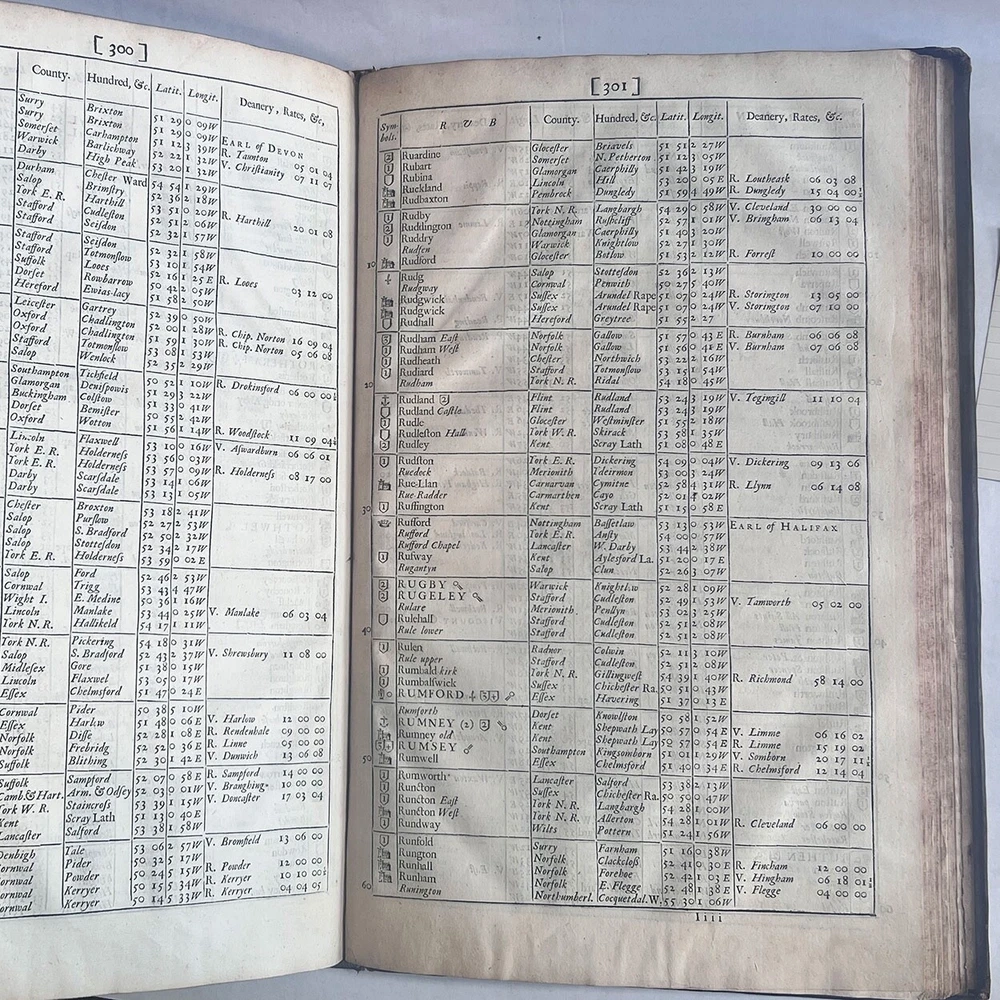 [ 300 ]
County. Hundred, &c. Latit. Longit. Deanery, Rates, &c,
Surry Brixton 51 29 0 09W EARL of DEVON
Surry Brixton 51 29 0 09W R. Taunton 05 01 04
Somerſet Carhampton 51 12 3 39W V. Chriſtianity 07 11 07
Warwick Barlichway 52 22 1 32W
Darby High Peak 53 20 1 32W
Durham Cheſter Ward 54 54 1 29W
Salop Brimſtry 52 36 2 18W
York E. R. Harthill 53 51 0 20W R. Harthill 20 01 08
Stafford Cudleſton 52 51 2 06W
Stafford Seiſdon 52 32 1 57W
Stafford Seiſdon 52 32 1 58W
Stafford Totmonſlow 53 10 1 54W
Suffolk Looes 52 16 1 25E R. Looes 03 12 00
Dorſet Rowbarrow 50 42 2 05W
Hereford Ewias-lacy 51 58 2 50W
Leiceſter Gartrey 52 39 0 50W
Oxford Chadlington 52 00 1 28W R. Chip. Norton 16 09 04
Oxford Chadlington 51 59 1 30W R. Chip. Norton 05 06 08
Stafford Totmonſlow 53 08 1 53W
Salop Wenlock 52 35 2 29W
Southampton Tichfield 50 52 1 10W R. Drokinsford 06 00 00
Glamorgan Deniſpowis 51 29 3 22W
Buckingham Colſtow 51 33 0 41W
Dorſet Bemiſter 50 55 2 42W
Oxford Wotton 51 56 1 14W R. Woodſtock 11 09 04
Lincoln Flaxwell 53 10 0 16W V. Aſwardburn 06 06 01
York E. R. Holderneſs 53 56 0 03W
York E. R. Holderneſs 53 57 0 09W R. Holderneſs 08 17 00
Darby Scarſdale 53 14 1 06W
Darby Scarſdale 53 13 1 05W
Cheſter Broxton 53 18 2 41W
Salop Purſlow 52 27 2 53W
Salop S. Bradford 52 50 2 32W
Salop Stotteſdon 52 34 2 17W
York E. R. Holderneſs 53 59 0 02E
Salop Ford 52 46 2 53W
Cornwal Trigg 53 43 4 47W
Wight I. E. Medine 50 36 1 16W
Lincoln Manlake 53 44 0 25W V. Manlake 06 03 04
York N. R. Hallikeld 54 17 1 11W
York N. R. Pickering 54 18 0 31W
Salop S. Bradford 52 43 2 37W V. Shrewsbury 11 08 00
Midleſex Gore 51 38 0 15W
Lincoln Flaxwel 53 05 0 17W
Eſſex Chelmsford 51 47 0 24E
Cornwal Pider 50 38 5 10W
Eſſex Harlow 51 48 0 06E V. Harlow 12 00 00
Norfolk Diſſe 52 28 1 08E R. Reudenhale 09 00 00
Norfolk Frebridg 52 52 0 36E R. Linne 05 00 00
Suffolk Blithing 52 30 1 42E V. Dunwich 13 06 08
Suffolk Sampford 52 07 0 58E R. Sampford 14 00 00
Camb.& Hart. Arm. & Odſey 52 03 0 01W V. Branghing 10 00 00
York W. R. Staincroſs 53 39 1 15W V. Doncaſter 17 03 04
Kent Scray Lath 51 13 0 40E
Lancaſter Salford 53 38 1 58W
Denbigh Tale 53 06 2 57W V. Bromfield 13 06 00
Cornwal Pider 50 32 5 17W
Cornwal Powder 50 24 5 15W R. Powder 12 00 00
Cornwal Kerryer 50 15 5 34W R. Kerryer 10 10 00
Cornwal Kerryer 50 14 5 33W R. Kerryer 04 04 05
[ 301 ]
Symbols. R U B County. Hundred, &c. Latit. Longit. Deanery, Rates, &c.
Ruardine Gloceſter Briavels 51 51 2 27W
Rubart Somerſet N. Petherton 51 12 3 05W
Rubina Glamorgan Caerphilly 51 42 3 19W
Ruckland Lincoln Hill 53 20 0 05E R. Loutheask 06 03 08
Rudbaxton Pembrock Dungledy 51 59 4 49W R. Dungledy 15 04 00
Rudby York N. R. Langbargh 54 29 0 58W V. Cleveland 30 00 00
Ruddington Nottingham Ruſhcliff 52 57 1 01W V. Bringham 06 13 04
Ruddry Glamorgan Caerphilly 51 40 3 20W
Rudſen Warwick Knightlow 52 27 1 30W
10 Rudford Gloceſter Botlow 51 53 2 12W R. Forreſt 10 00 00
Rudg Salop Stotteſdon 52 36 2 13W
Rudgway Cornwal Penwith 50 27 5 40W
Rudgwick Suſſex Arundel Rape 51 07 0 24W R. Storington 13 05 00
Rudgwick Suſſex Arundel Rape 51 07 0 24W V. Storington 07 10 00
Rudhall Hereford Greytree 51 55 2 27
Rudham Eaſt Norfolk Gallow 51 57 0 43E R. Burnham 06 06 08
Rudham Weſt Norfolk Gallow 51 56 0 41E V. Burnham 07 06 08
Rudheath Cheſter Northwich 53 22 2 16W
Rudiard Stafford Totmonſlow 53 15 1 54W
20 Rudham York N. R. Ridal 54 18 0 45W
Rudland Flint Rudland 53 24 3 19W V. Tegingill 11 10 04
Rudland Caſtle Flint Rudland 53 24 3 19W
Rudle Gloceſter Weſtminſter 51 55 2 18W
Rudleſton Hall York W. R. Skirack 53 58 1 35W
Rudley Kent Scray Lath 51 08 0 48E
Rudſton York E. R. Dickering 54 09 0 04W V. Dickering 09 13 06
Ruedock Merionith Tdeirmon 53 00 3 24W
Rue-Llan Carnarvan Cymitne 52 58 4 31W R. Llynn 06 14 08
Rue-Radder Carmarthen Cayo 52 01 4 02W
30 Ruffington Kent Scray Lath 51 15 0 58E
Rufford Nottingham Baſſetlaw 53 13 0 53W EARL of HALIFAX
Rufford York E. R. Anſty 54 00 0 57W
Rufford Chapel Lancaſter W. Darby 53 44 2 38W
Rufway Kent Aylesford La. 51 20 0 17E
Rugantyn Salop Clun 52 26 3 07W
RUGBY Warwick Knightlow 52 28 1 09W
RUGELEY Stafford Cudleſton 52 49 1 53W V. Tamworth 05 02 00
Rulare Merionith Penllyn 53 02 3 25W
Rulehall Stafford Cudleſton 52 51 2 08W
40 Rule lower Stafford Cudleſton 52 51 2 08W
Rulen Radnor Colwin 52 11 3 10W
Rule upper Stafford Cudleſton 52 51 2 08W
Rumbald kirk York N. R. Gillingweſt 54 39 1 40W R. Richmond 58 14 00
Rumbalſwick Suſſex Chicheſter Ra. 50 51 0 43W
RUMFORD Eſſex Havering 51 37 0 13E
Rumforth Dorſet Knowlton 50 58 1 52W
RUMNEY (2) Kent Shepwath Lay 50 57 0 54E V. Limme 06 16 02
Rumney old Kent Shepwath Lay 50 57 0 54E R. Limme 15 19 02
RUMSEY Southampton Kingsomborn 51 01 1 29W V. Somborn 20 17 11
50 Rumwell Eſſex Chelmsford 51 40 0 34E R. Chelmsford 12 14 04
Rumworth Lancaſter Salford 53 38 2 13W
Runcton Suſſex Chicheſter Ra. 50 50 0 47W
Runcton Eaſt York N. R. Langbargh 54 28 1 00W
Runcton Weſt York N. R. Allerton 54 28 1 01W R. Cleveland 06 00 00
Rundway Wilts Pottern 51 24 1 56W
Runfold Surry Farnham 51 16 0 38W
Rungton Norfolk Clackcloſs 52 41 0 30E R. Fincham 12 00 00
Runhall Norfolk Forehoe 52 42 1 03E V. Hingham 06 18 01
Runham Norfolk E. Flegge 52 48 1 38E V. Flegge 04 00 00
60 Runington Northumberl. Cocquetdal.W. 55 30 1 06W
Iiii